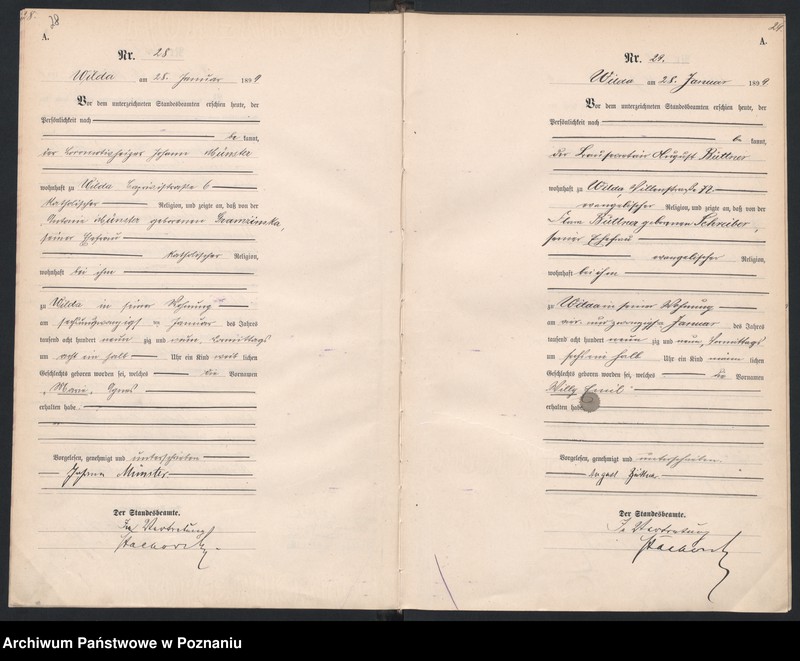 28.
28
A.
Nr. 28
Wilda am 28. Januar 1899
Vor dem unterzeichneten Standesbeamten erschien heute, der
Persönlichkeit nach
be kannt,
der Locomotivheizer Johann Münster
wohnhaft zu Wilda 6
katholischer Religion, und zeigte an, daß von der
geborenen
seiner Ehefrau
katholischer Religion,
wohnhaft bei ihm
zu Wilda in seiner Wohnung
am sechsundzwanzigsten Januar des Jahres
tausend acht hundert neun zig und neun, Vormittags
um acht ein halb Uhr ein Kind weib lichen
Geschlechts geboren worden sei, welches die Vornamen
Agnes
erhalten habe
Vorgelesen, genehmigt und unterschrieben
Johann Münster
Der Standesbeamte.
In Vertretung
29.
A.
Nr. 29.
Wilda am 28. Januar 1899.
Vor dem unterzeichneten Standesbeamten erschien heute, der
Persönlichkeit nach
be kannt,
der August Büttner
wohnhaft zu Wilda,
evangelischer Religion, und zeigte an, daß von der
Büttner geborenen Schreiber,
seiner Ehefrau
evangelischer Religion,
wohnhaft bei ihm
zu Wilda in seiner Wohnung
am Januar des Jahres
tausend acht hundert neun zig und neun,
um ein halb Uhr ein Kind männ lichen
Geschlechts geboren worden sei, welches die Vornamen
Willy Emil
erhalten habe
Vorgelesen, genehmigt und unterschrieben
August Büttner
Der Standesbeamte.
In Vertretung
Archiwum Państwowe w Poznaniu